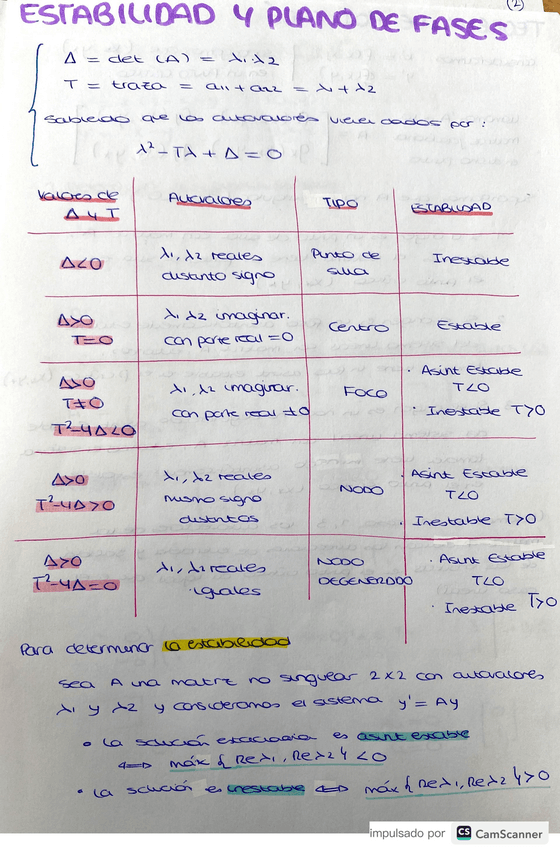 (2)
ESTABILIDAD Y PLANO DE FASES
Δ = det (A) = λ1·λ2
T = traza = a11 + a22 = λ1 + λ2
Sabiendo que los autovalores vienen dados por:
λ² - Tλ + Δ = 0
Valores de Δ y T | Autovalores | TIPO | ESTABILIDAD
Δ<0 | λ1, λ2 reales distinto signo | Punto de silla | Inestable
Δ>0 T=0 | λ1 λ2 imaginar. con parte real =0 | Centro | Estable
Δ>0 T≠0 T²-4Δ<0 | λ1, λ2 imaginar. con parte real ≠0 | FOCO | · Asint Estable T<0 · Inestable T>0
Δ>0 T²-4Δ>0 | λ1, λ2 reales mismo signo distintos | NODO | · Asint Estable T<0 · Inestable T>0
Δ>0 T²-4Δ=0 | λ1, λ2 reales iguales | NODO DEGENERDOO | · Asint Estable T<0 · Inestable T>0
Para determinar la estabilidad
Sea A una matriz no singular 2x2 con autovalores
λ1 y λ2 y consideramos el sistema y' = Ay
• La solución estacionaria es asint estable
⟺ máx{Reλ1, Reλ2} <0
• La solución es inestable ⟺ máx{Reλ1, Reλ2}>0
impulsado por CS CamScanner